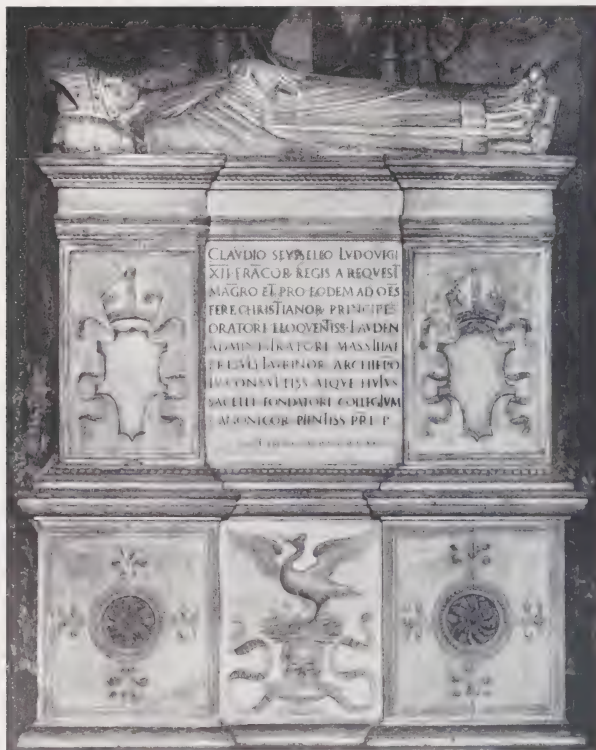 CLAVDIO SEYSSELLO LVDOVICI
XII FRĀCOR REGIS A REQVEST
MAGRO ET PRO EODEM AD OES
FERE CHRISTIANOR PRINCIPES
ORATORI ELOQVENTISS LAVDEN
ADMINISTRATORI MASSILIAE
PRESVLI TAVRINOR ARCHIEPO
IVCONSVLTISS ATQVE HVIVS
SACELLI FONDATORI COLLEGIVM
CANONICOR PIENTISS PRI P